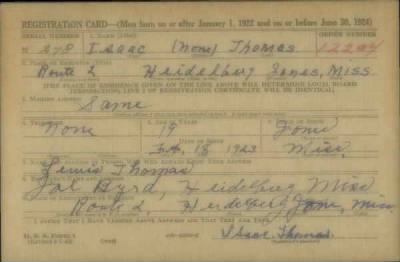 REGISTRATION CARD—(Men born on or after January 1, 1922 and on or before June 30, 1924)
SERIAL NUMBER 1. NAME (Print) ORDER NUMBER
N 278 Isaac (None) Thomas 12204
2. PLACE OF RESIDENCE (Print)
Route 2 Heidelberg Jones, Miss.
[THE PLACE OF RESIDENCE GIVEN ON THE LINE ABOVE WILL DETERMINE LOCAL BOARD
JURISDICTION; LINE 2 OF REGISTRATION CERTIFICATE WILL BE IDENTICAL]
3. MAILING ADDRESS
Same
4. TELEPHONE 5. AGE IN YEARS 6. PLACE OF BIRTH
None 19 Jones
DATE OF BIRTH
Feb. 18 1923 Miss.
7. NAME AND ADDRESS OF PERSON WHO WILL ALWAYS KNOW YOUR ADDRESS
Lewis Thomas
Byrd, Heidelberg Miss
Route 2, Heidelberg Jones, Miss.
I AFFIRM THAT I HAVE VERIFIED ABOVE ANSWERS AND THAT THEY ARE TRUE.
D. S. S. FORM 1
Isaac Thomas